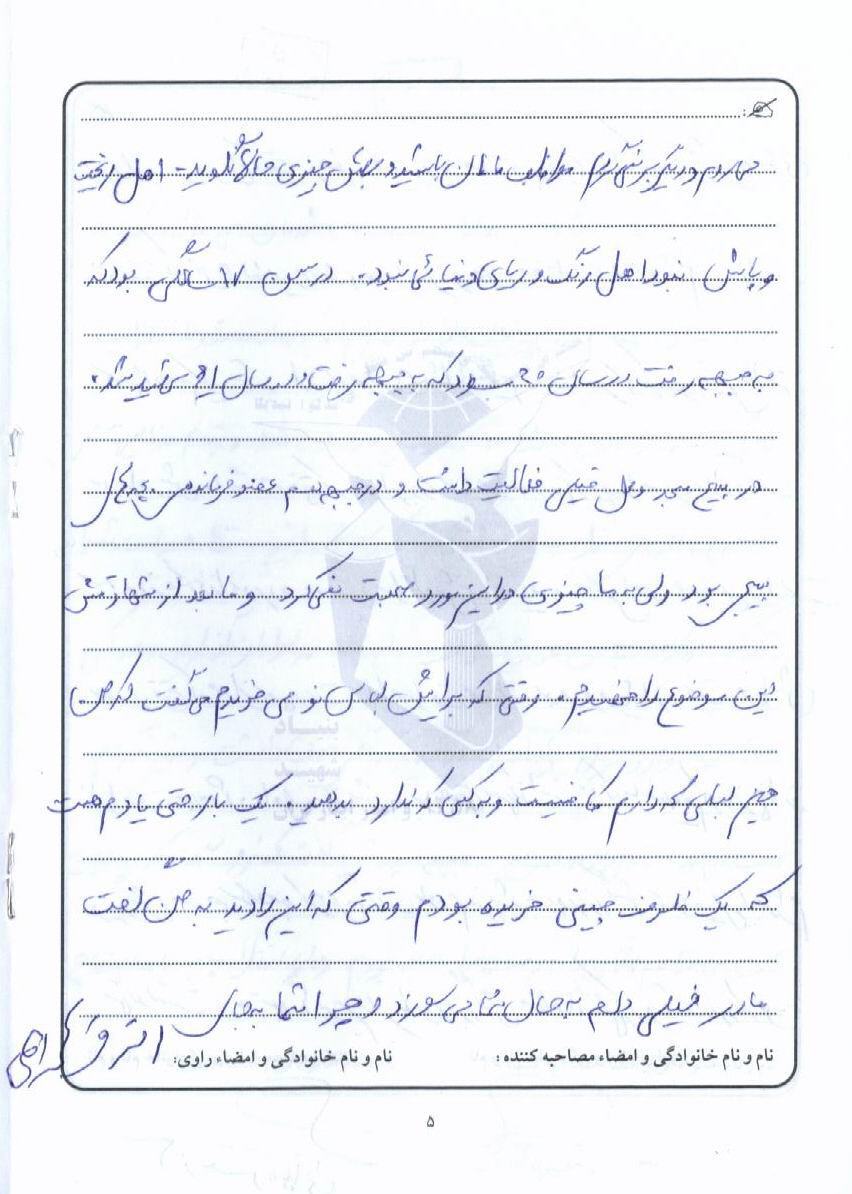 می‌روم و دیگر برنمی‌گردم مواظب مامان باشید و بهش چیزی حالا نگویید - اهل ریخت
و پاش نبود اهل رنگ و ریای دنیائی نبود. در سن ۱۷ سالگی بود که
به جبهه رفت در سال ۶۰ بود که به جبهه رفت و در سال ۶۱ شهید شد.
در بسیج مسجد و محل خیلی فعالیت داشت و در جبهه هم عضو فرماندهی
بسیج بود ولی به ما چیزی در این مورد صحبت نمی‌کرد و ما بعد از شهادتش
این موضوع را فهمیدیم. وقتی که برایش لباس نو می‌خریدم می‌گفت که من
همین لباسی که دارم کافیست و به کسی که ندارد بدهید. یک بار حتی یادم هست
که یک ظرف چینی خریده بودم وقتی که این را دید به من گفت
مادر خیلی دلم به حال شما می‌سوزد و چرا شما به جای
نام و نام خانوادگی و امضاء مصاحبه کننده : نام و نام خانوادگی و امضاء راوی:
۵